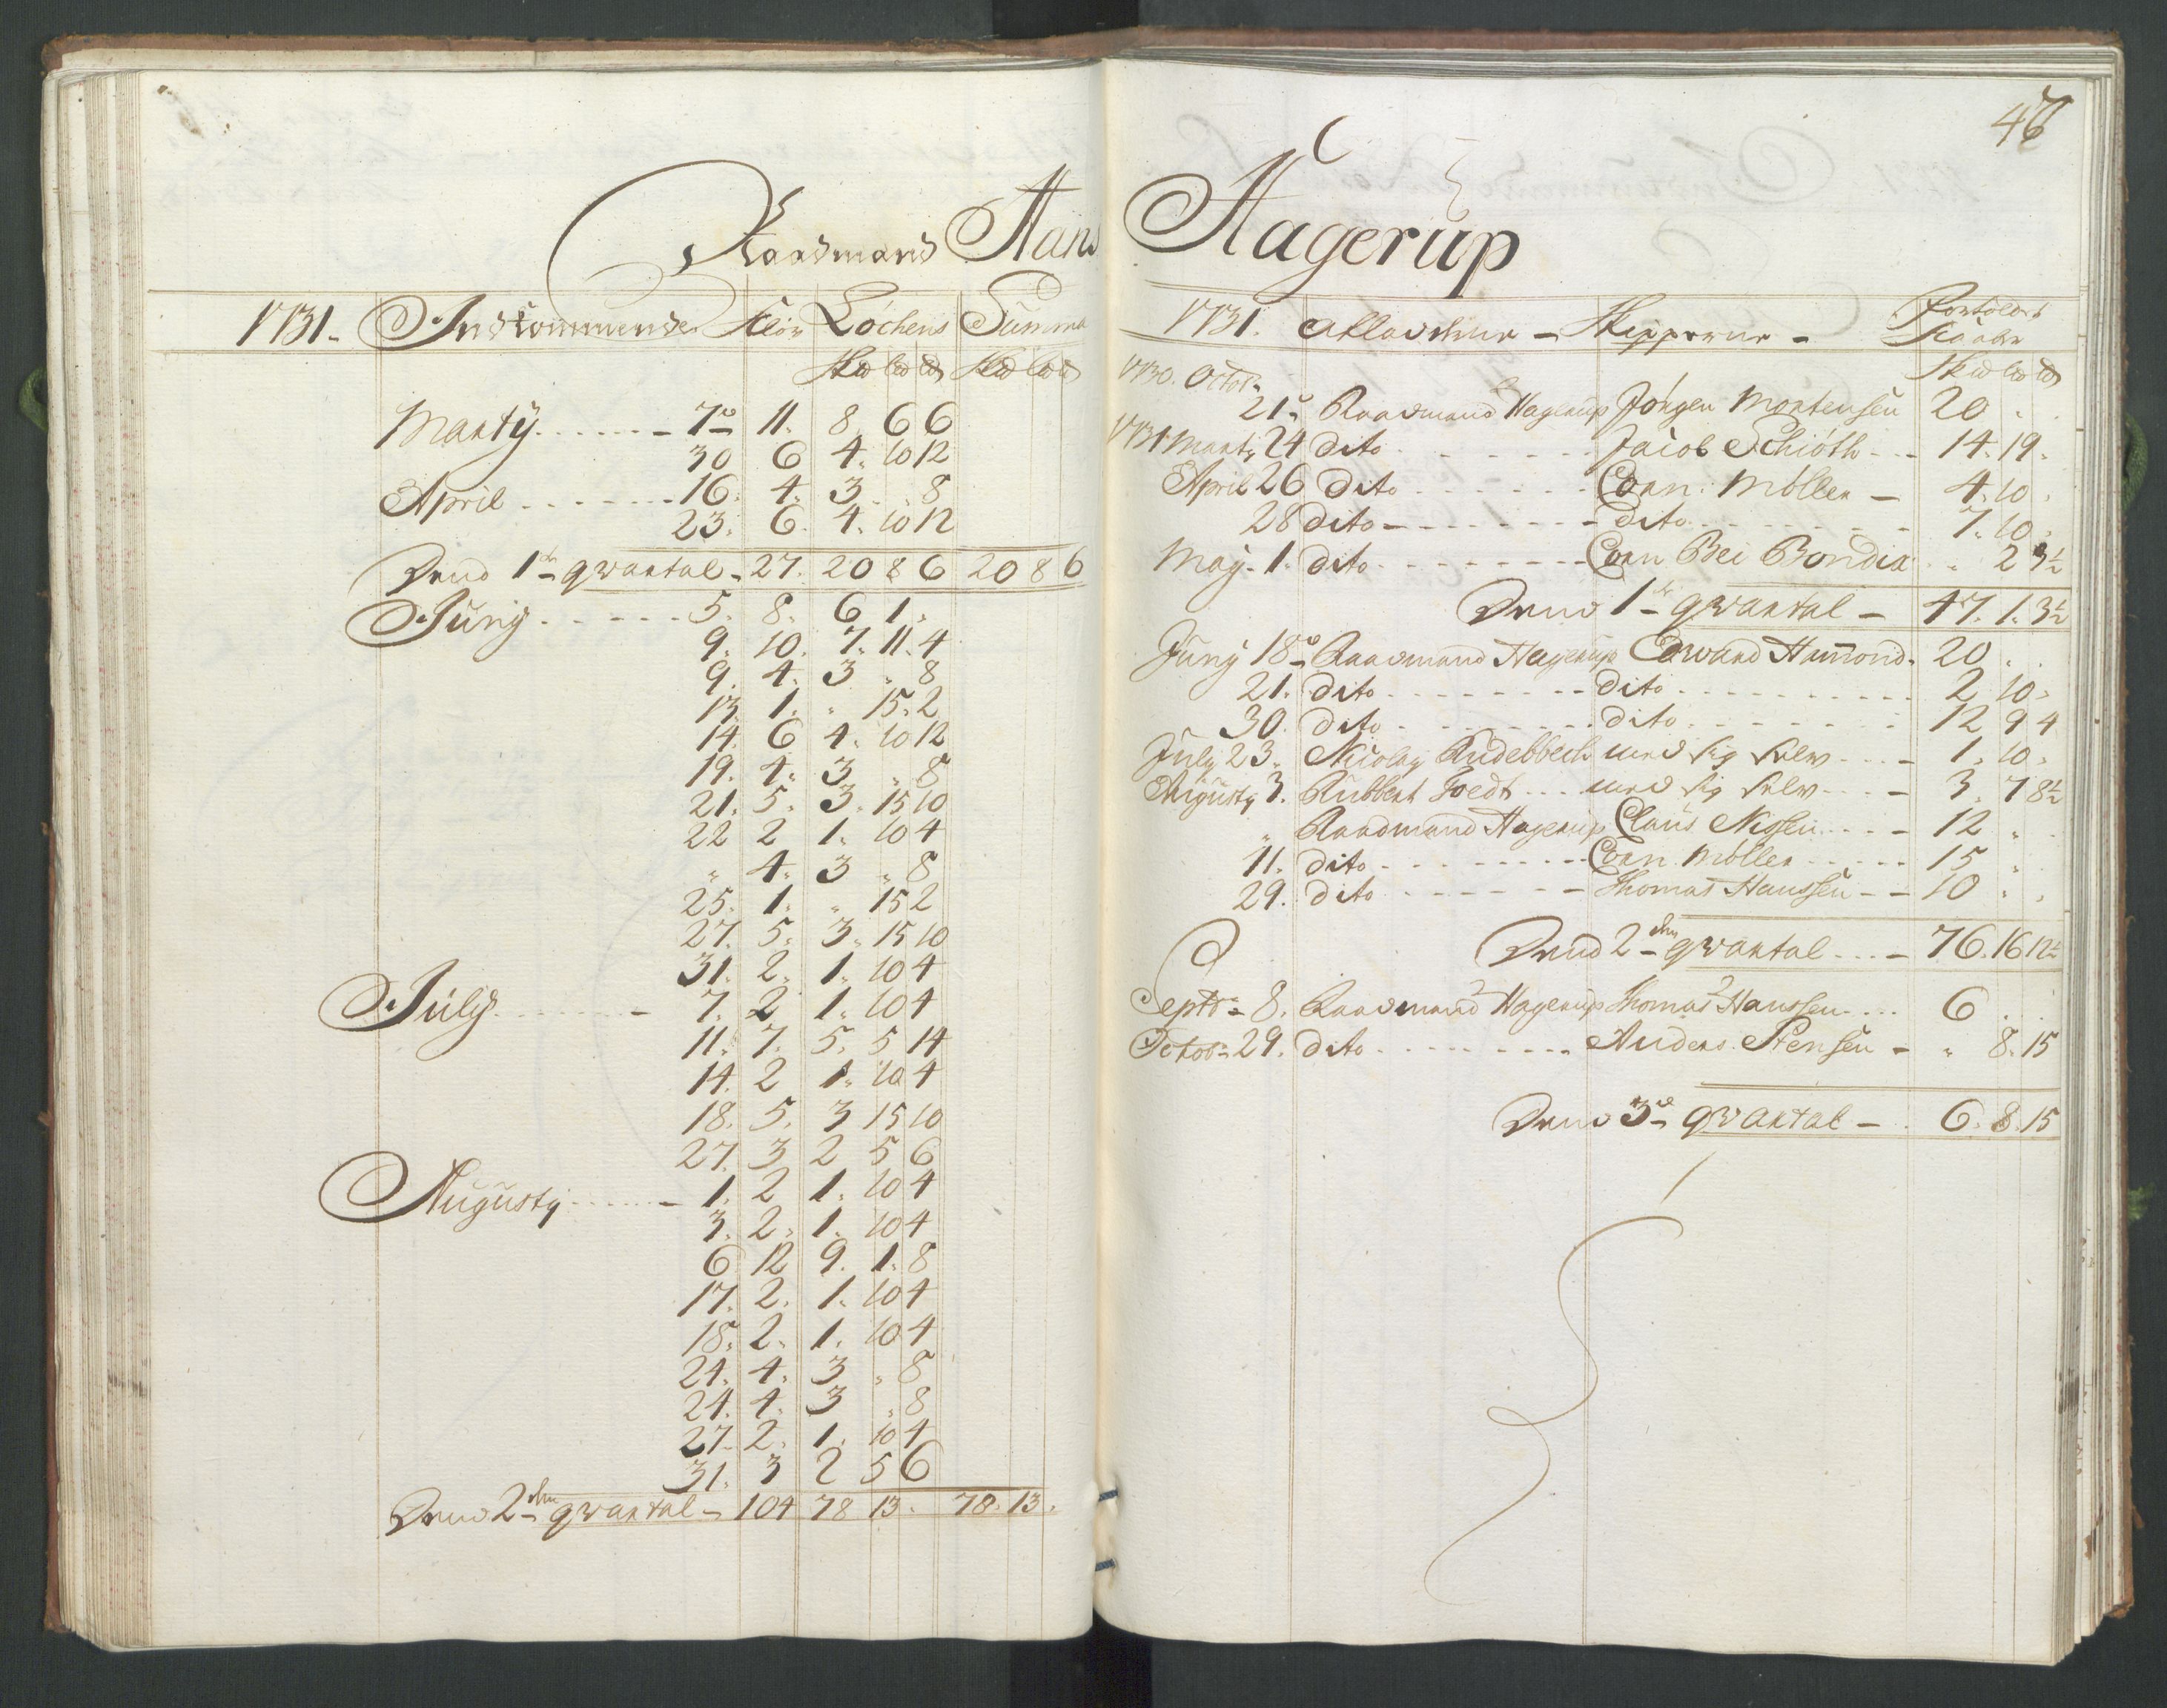 Raadmand Hans
1731. Indkommende Kiør Lochens Summa
Sk℔ L℔ ℔ Sk℔ L℔ ℔
Marty 7de 11. 8. 6 6
30 6 4. 10 12
April 16. 4. 3 . 8
23. 6. 4. 10 12
Dend 1te qvartal 27. 20 8 6 20 8 6
Juny 5. 8. 6 1.
9. 10. 7. 11. 4
9. 4. 3 " 8
13 1. " 15. 2
14. 6 4. 10 12
19. 4. 3 " 8
21. 5. 3. 15 10
22 2 1. 10 4
" 4. 3 " 8
25. 1. " 15 2
27. 5. 3. 15 10
31. 2. 1. 10 4
July 7. 2 1. 10 4
11. 7. 5. 5 14
14. 2 1. 10 4
18. 5. 3 15 10
27. 3 2 5 6
Augusty 1. 2 1. 10 4
3. 2. 1. 10 4
6 12 9. 1. 8
17. 2. 1. 10 4
18. 2. 1. 10 4
24. 4. 3 " 8
24. 4. 3 " 8
27. 2. 1. 10 4
31. 3 2 5 6
Dend 2den qvartal 104 78 13. 78. 13.
46
Hagerup
1731. Afladerne Skipperne
Sk℔ L℔ ℔
1730. Octobr
21. Raadmand Hagerup Jörgen Mortensen 20 . .
1731 Marty 24 dito Jacob Schiöth 14. 19.
April 26 dito Corn: Möller 4. 10.
28 dito dito 7. 10.
May 1. dito Corn Bei Bondix " 2 3½
Dend 1te qvartal 47. 1. 3½
Juny 18de Raadmand Hagerup Edward Hamond. 20 . .
21. dito dito 2. 10.
30. dito dito 12 9 4
July 23. Nicolay Rudebbech med sig selv 1. 10.
Augusty 3. Rubbert Foedt med sig selv 3. 7 8½
" Raadmand Hagerup Claus Nissen 12 " .
11. dito Corn. Möller 15 " .
29. dito Thomas Hanssen 10 . .
Dend 2den qvartal 76. 16 12½
Septbr 8. Raadmand Hagerup Thomas Hanssen 6 . .
Octobr 29. dito Anders Stensen " 8. 15
Dend 3de qvartal 6. 8. 15